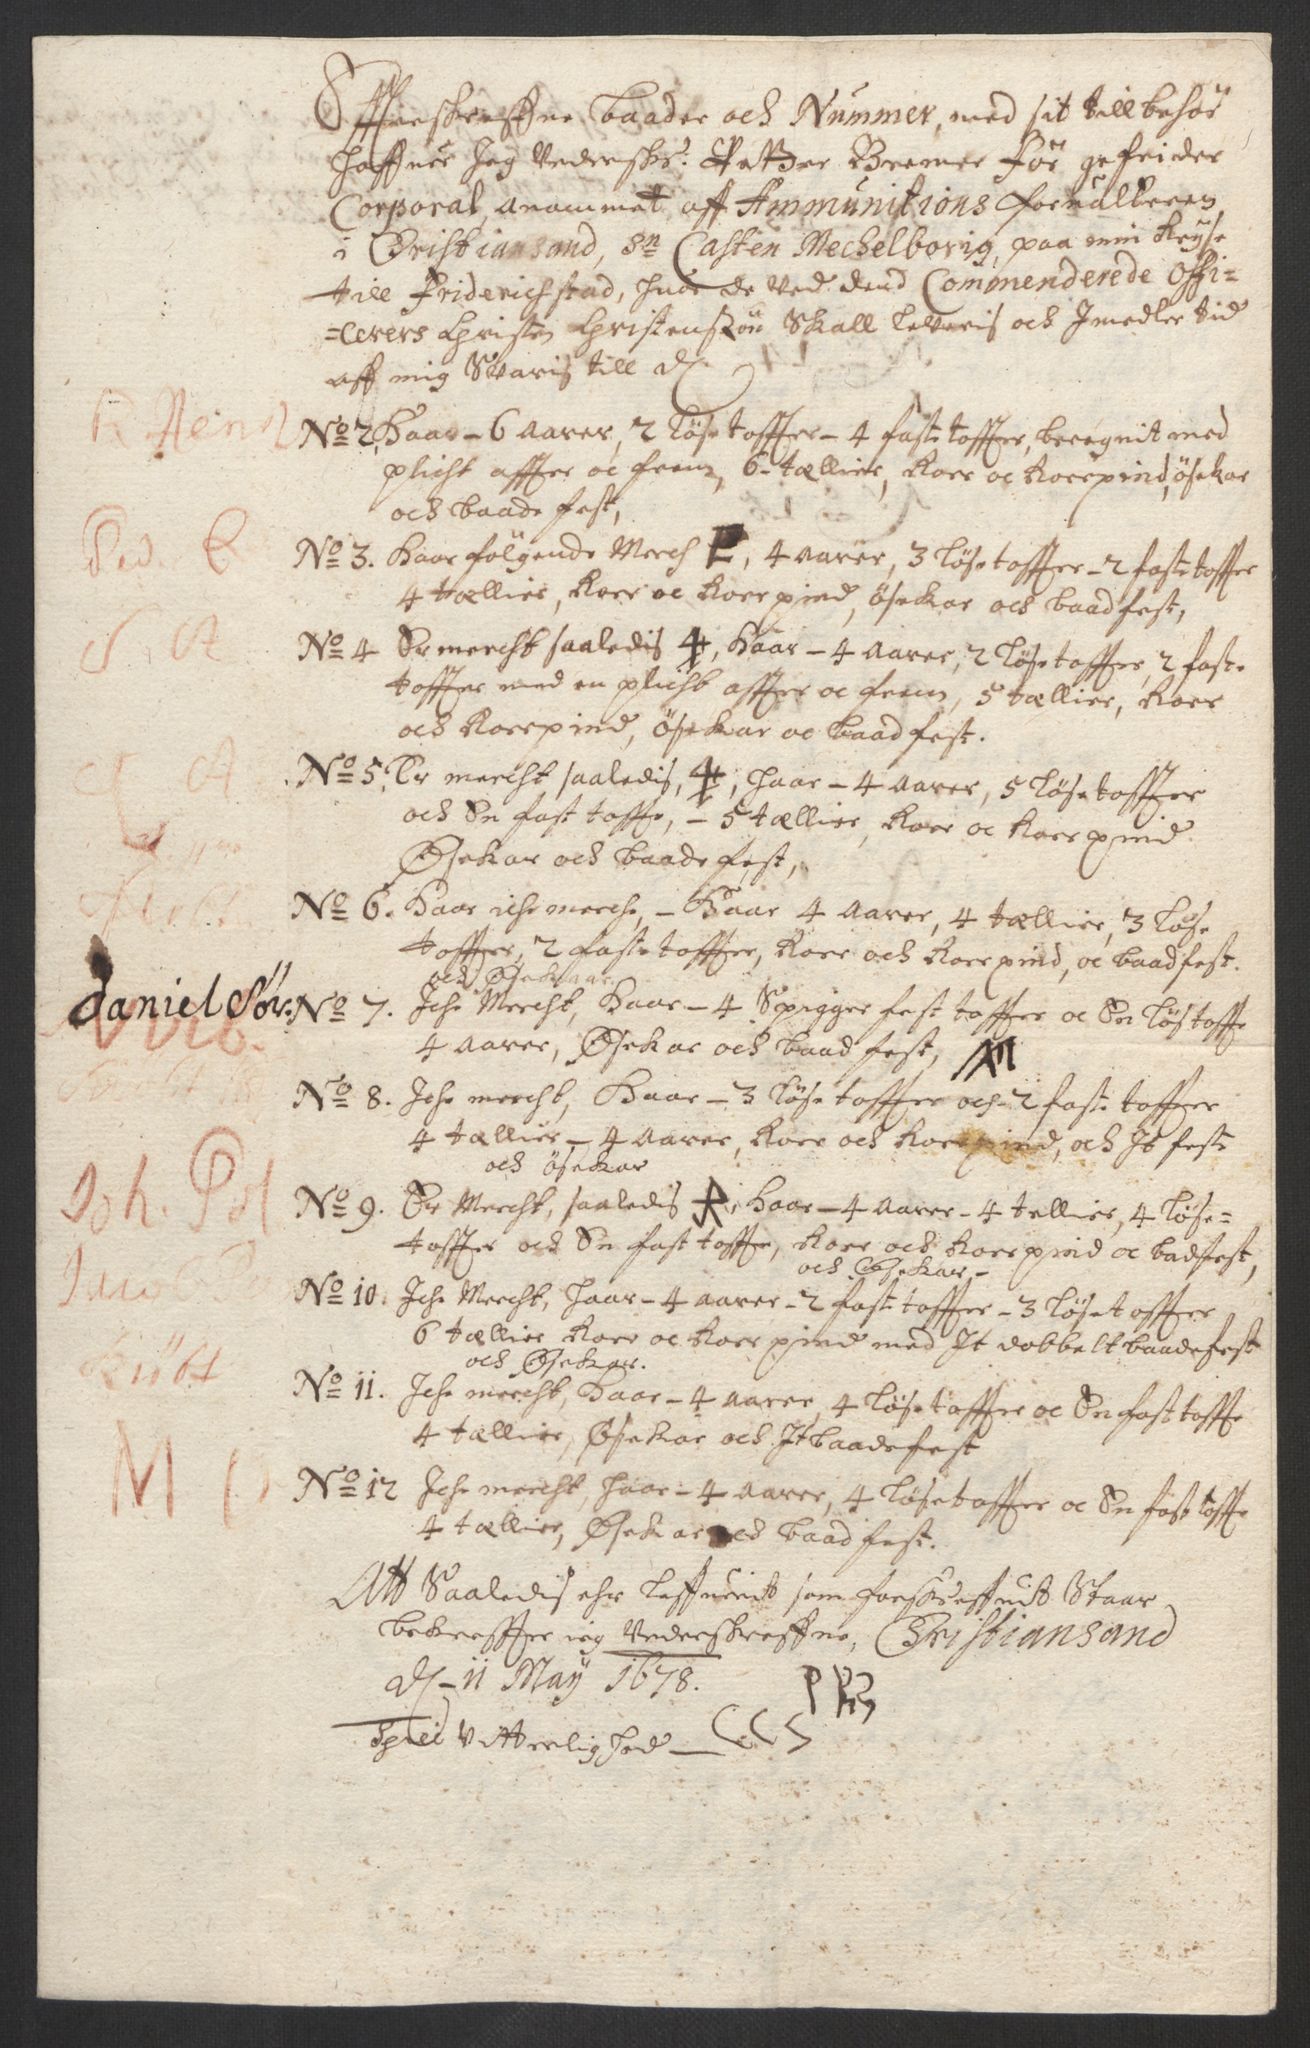 Effterskreffne baader och Nummer, med sit tillbehör
haffuer Jeg Underskr: Petter Bremer för gefreider
Corporal, anammet aff Ammunitions forualteren
i Cristiansand, Sr Casten Mechelborig, paa min Reyse
till Friderichstad, huor de ved dend Commenderede Offi=
=cerers Christen Christensßön Skall leveris och Jmedler tid
aff mig Svaris till
R
No 2, Haar - 6 aarer, 2 löse tofffter - 4 faste toffter, beregnit med
plicht affter oc frem, 6 tællier, Roer oc Roerpind, ösekar
och baade fest,
Ped. B
No 3. Haar fölgende Merch E, 4 aarer, 3 löse toffter - 2 faste toffter
4 tællier, Roer oc Roerpind, ösekar och baadfest,
S A
No 4 Er mercht saaledis 4, Haar - 4 aarer, 2 löse toffter, 2 faste
toffter med en plicht affter oc frem, 5 tællier, Roer
och Roerpind, ösekar oc baadfest.
A
No 5, Er mercht saaledis, 4, haar - 4 aarer, 5 löse toffter
och En fast tofffte, - 5 tællier, Roer oc Roerpind
Ösekar och baade fest,
No 6. Haar iche merche, - Haar 4 aarer, 4 tællier, 3 löse
toffter, 2 faste toffter, Roer och Roerpind, oc baadfest.
och Ösekaar
daniel Sör.
No 7. Iche Mercht, Haar - 4 Spigger fest toffter oc En lös toffte
4 aarer, Ösekar och baad fest,
No 8. Iche mercht, Haar - 3 löse toffter och 2 faste toffter
4 tællier - 4 aarer, Roer och Roerpind, och It feste
och ösekar
Joh. Pol
No 9. Er Mercht, saaledis R, haar - 4 aarer - 4 tellier, 4 löse=
toffter och En fast toffte, Roer och Roerpind oc badfest,
och Ösekar -
Jacob
No 10. Iche Mercht, haar - 4 aarer - 2 faste toffter - 3 löse toffter
6 tællier Roer oc Roerpind med It dobbelt baadefest
och Ösekar.
No 11. Iche mercht, Haar - 4 aarer, 4 löse toffter oc En fast toffte
4 tællier, Ösekar och It baadefest
M
No 12 Iche mercht, haar - 4 aarer, 4 löse toffter oc En fast toffte
4 tællier, Ösekar och baad fest.
Att Saaledis ehr leffuerit som forskreffuit Staar
bekreffter ieg Underskreffne, Cristiansand
d - 11 May 1678.
till Vitterlighed - P B